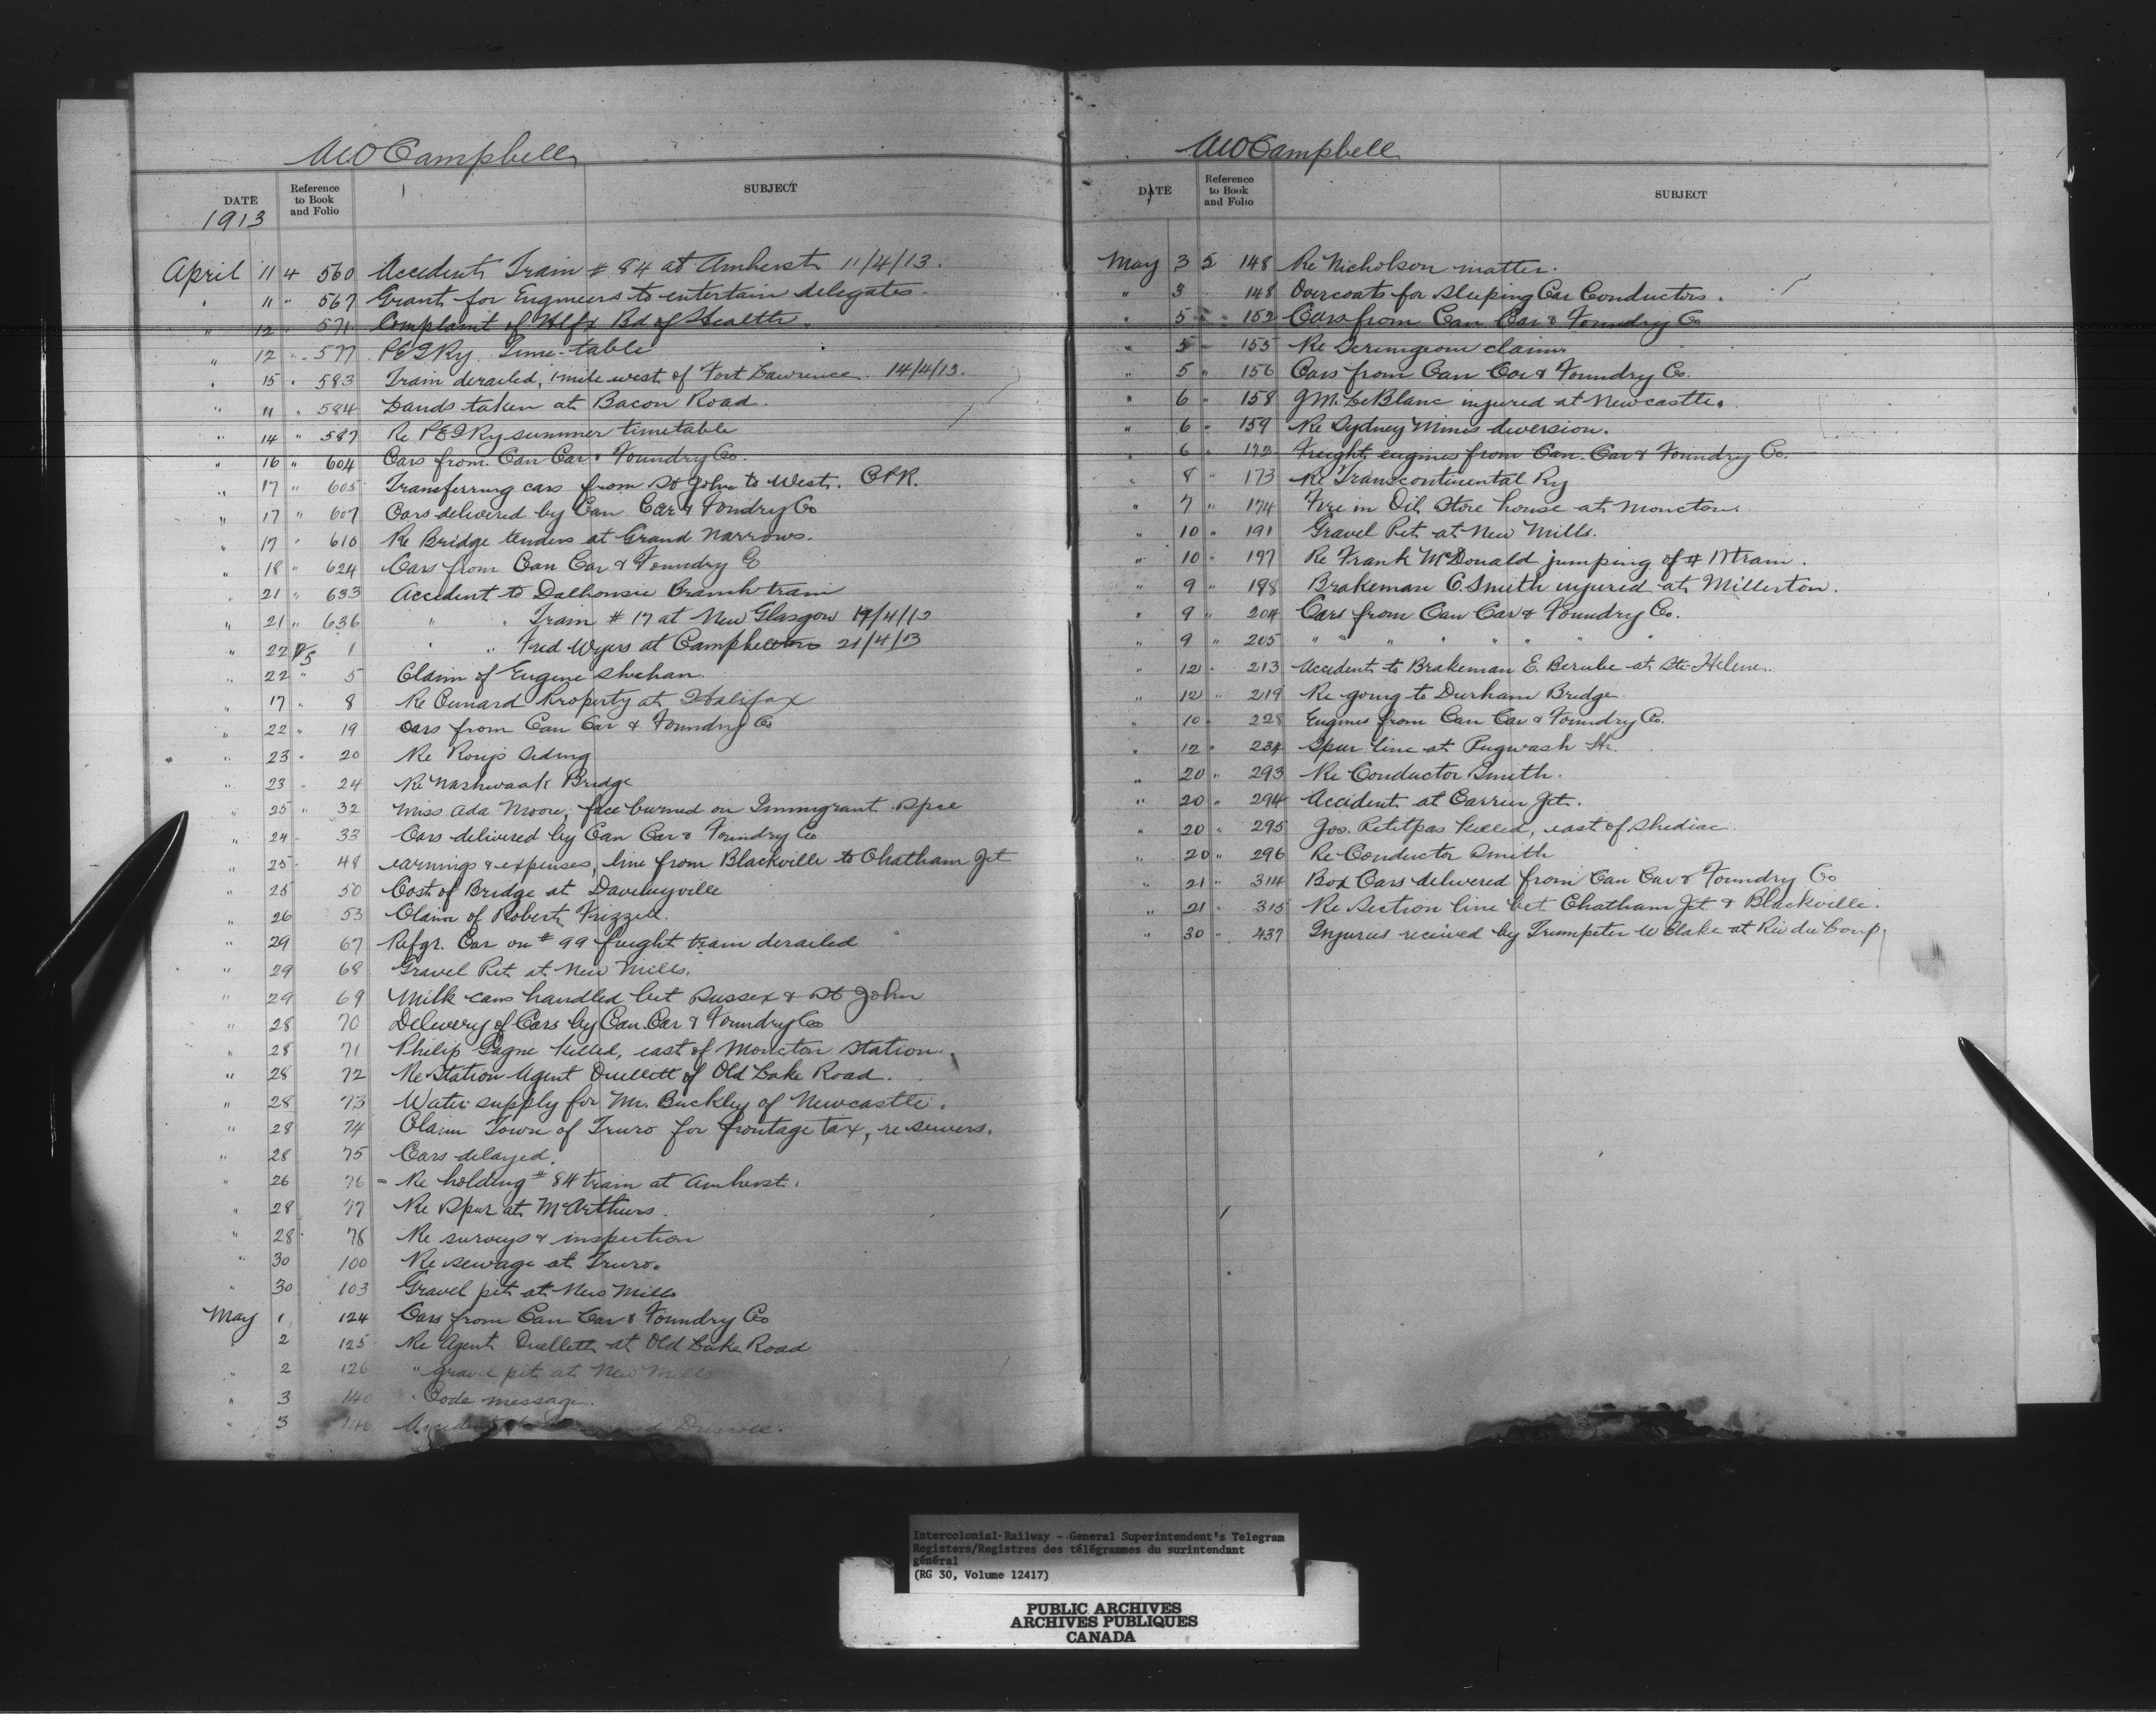 AWCampbell
DATE Reference to Book and Folio SUBJECT
1913
April 11 4 560 Accident Train # 84 at Amherst 11/4/13.
" 11 " 567 Grant for Engineers to entertain delegates.
" 12 " 571 Complaint of Hlfx Bd of Health.
" 12 " 577 PEIRy. Time-table
" 15 " 583 Train derailed, 1 mile west of Fort Lawrence. 14/4/13.
" 11 " 584 Lands taken at Bacon Road.
" 14 " 587 Re PEIRy summer timetable
" 16 " 604 Cars from Can Car & Foundry Co.
" 17 " 605 Transferring cars from St John to West. CPR.
" 17 " 607 Cars delivered by Can Car & Foundry Co
" 17 " 610 Re Bridge tenders at Grand Narrows.
" 18 " 624 Cars from Can Car & Foundry Co
" 21 " 633 Accident to Dalhousie Branch train
" 21 " 636 " " Train # 17 at New Glasgow 19/4/13
" 22 5 1 " " Fred Wyers at Campbellton 21/4/13
" 22 " 5 Claim of Eugene Shehan.
" 17 " 8 Re Cunard Property at Halifax
" 22 " 19 Cars from Can Car & Foundry Co
" 23 " 20 Re Siding
" 23 " 24 Re Nashwaak Bridge
" 25 " 32 Miss Ada Moore, face burned on Immigrant Spec
" 24 " 33 Cars delivered by Can Car & Foundry Co
" 25 " 48 earnings & expenses, line from Blackville to Chatham Jct
" 25 50 Cost of Bridge at
" 26 53 Claim of Robert Frizzell.
" 29 67 Refgr. Car on # 99 freight train derailed
" 29 68 Gravel Pit at New Mills.
" 29 69 Milk cans handled bet Sussex & St John
" 28 70 Delivery of Cars by Can. Car & Foundry Co
" 28 71 Philip Gagne killed, east of Moncton Station.
" 28 72 Re Station Agent Ouellett of Old Lake Road.
" 28 73 Water supply for Mr. Buckley of Newcastle.
" 28 74 Claim Town of Truro for frontage tax, re sewers.
" 28 75 Cars delayed.
" 26 76 - Re holding # 84 train at Amherst.
" 28 77 Re Spur at McArthurs.
" 28 78 Re surveys & inspection
" 30 100 Re sewage at Truro.
" 30 103 Gravel pit at New Mills
May 1 124 Cars from Can Car & Foundry Co
" 2 125 Re Agent Ouellett at Old Lake Road
" 2 126 " gravel pit at New Mills
" 3 140 Code message.
" 3 146 Accident to
AWCampbell
DATE Reference to Book and Folio SUBJECT
May 3 5 148 Re Nicholson matter.
" 3 148 Overcoats for Sleeping Car Conductors.
" 5 " 152 Cars from Can Car & Foundry Co
" 5 " 155 Re Scrimgeour claim.
" 5 " 156 Cars from Can Car & Foundry Co.
" 6 " 158 J M. LeBlanc injured at Newcastle.
" 6 " 159 Re Sydney Mines diversion.
" 6 " 172 Freight engines from Can. Car & Foundry Co.
" 8 " 173 Re Transcontinental Ry
" 7 " 174 Fire in Oil Store house at Moncton.
" 10 " 191 Gravel Pit at New Mills.
" 10 " 197 Re Frank McDonald jumping of # 17 train.
" 9 " 198 Brakeman C. Smith injured at Millerton.
" 9 " 204 Cars from Can Car & Foundry Co.
" 9 " 205 " " " " " " "
" 12 " 213 Accident to Brakeman E. Berube at Ste Helene.
" 12 " 219 Re going to Durham Bridge.
" 10 " 228 Engines from Can Car & Foundry Co.
" 12 " 234 Spur line at Pugwash
" 20 " 293 Re Conductor Smith.
" 20 " 294 Accident at Carrier Jct.
" 20 " 295 Jos. Petitpas killed, east of Shediac
" 20 " 296 Re Conductor Smith
" 21 " 314 Box Cars delivered from Can Car & Foundry Co
" 21 " 315 Re Section line bet Chatham Jct & Blackville.
" 30 " 437 Injuries received by Trumpeter W Clake at Riv du Loup.
Intercolonial-Railway - General Superintendent's Telegram
Registers/Registres des télégrammes du surintendant
général
(RG 30, Volume 12417)
PUBLIC ARCHIVES
ARCHIVES PUBLIQUES
CANADA